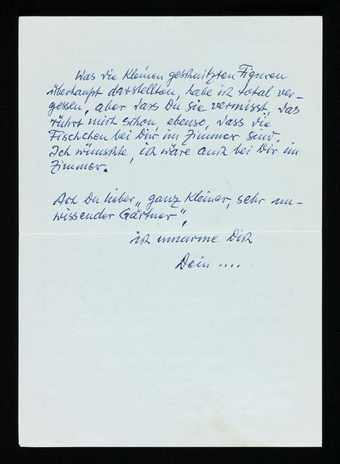 Was die kleinen geschnitzten Figuren
überhaupt darstellten, habe ich total ver-
gessen, aber dass Du sie vermisst, das
rührt mich schon, ebenso, dass die
Fischchen bei Dir im Zimmer sind.
Ich wünschte, ich wäre auch bei Dir im
Zimmer.
Ach Du lieber „ganz kleiner, sehr un-
wissender Gärtner",
ich umarme Dich
Dein ....